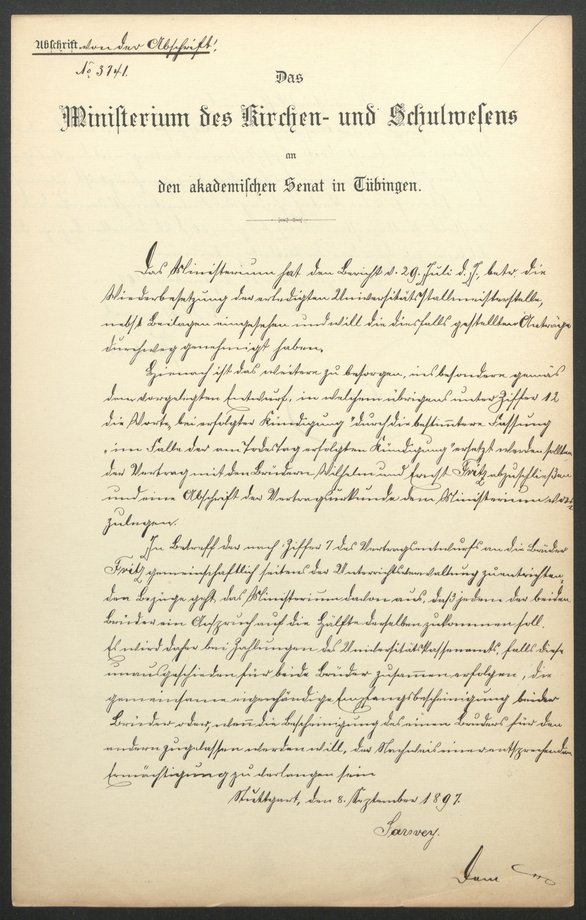 Abschrift von der Abschrift!
No 3741.
Das
Ministerium des Kirchen- und Schulwesens
an
den akademischen Senat in Tübingen.
Das Ministerium hat den Bericht v. 29. Juli d. J., betr. die
Wiederbesetzung der erledigten Universitätsstallmeisterstelle,
nebst Beilagen eingesehen und will die diesfalls gestellten Anträge
durchweg genehmigt haben.
Hienach ist das weitere zu besorgen, insbesondere gemäs
dem vorgelegten Entwurf, in welchem übrigens unter Ziffer 12
die Worte "bei erfolgter Kündigung" durch die bestimmtere Fassung
"im Falle der am Todestag erfolgten Kündigung" ersetzt werden sollten
der Vertrag mit den Brüdern Wilhelm und Ernst Fritz abzuschließen
und eine Abschrift der Vertragsurkunde dem Ministerium vor-
zulegen.
In Betreff der nach Ziffer 7 des Vertragsentwurfs an die Brüder
Fritz gemeinschaftlich seitens der Unterrichtsverwaltung zu entrichten
den Bezüge geht das Ministerium davon aus, daß jedem der beiden
Brüder ein Anspruch auf die Hälfte derselben zukommen soll.
Es wird daher bei Zahlungen des Universitätskassenamts, falls diese
unausgeschieden für beide Brüder zusammen erfolgen, die
gemeinsame eigenhändige Empfangsbescheinigung beider
Brüder oder, wenn die Bescheinigung des einen Bruders für den
andern zugelassen werden will, der Nachweis einer entsprechenden
Ermächtigung zu verlangen sein.
Stuttgart, den 8. September 1897.
Sarwey.
Dem